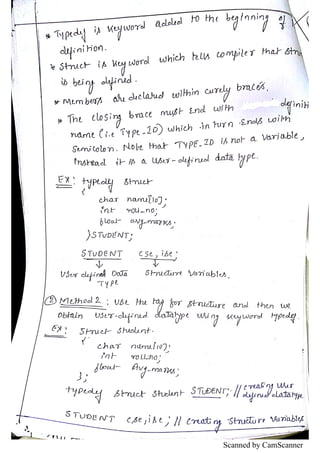 * Typedef is keyword added to the beginning of
definition.
* Struct is keyword which tells compiler that
is being defined.
* Members are declared within curly braces.
* The closing brace must end with
name (i.e TYPE_ID) which in turn ends with
semicolon. Note that TYPE_ID is not a variable,
instead it is a user-defined data type.
Ex: typedef struct
{
char name[10];
int roll_no;
float avg_marks;
}STUDENT;
STUDENT cse, ise;
User defined Data Structure variables.
Type
② Method 2: Use the tag for structure and then we
obtain user-defined datatype using keyword typedef.
Ex: Struct student
{
char name[10];
int rollno;
float Avg_marks;
};
typedef struct student STUDENT; // creating user
defined datatype
STUDENT cse, ise; // creating structure variables
Scanned by CamScanner